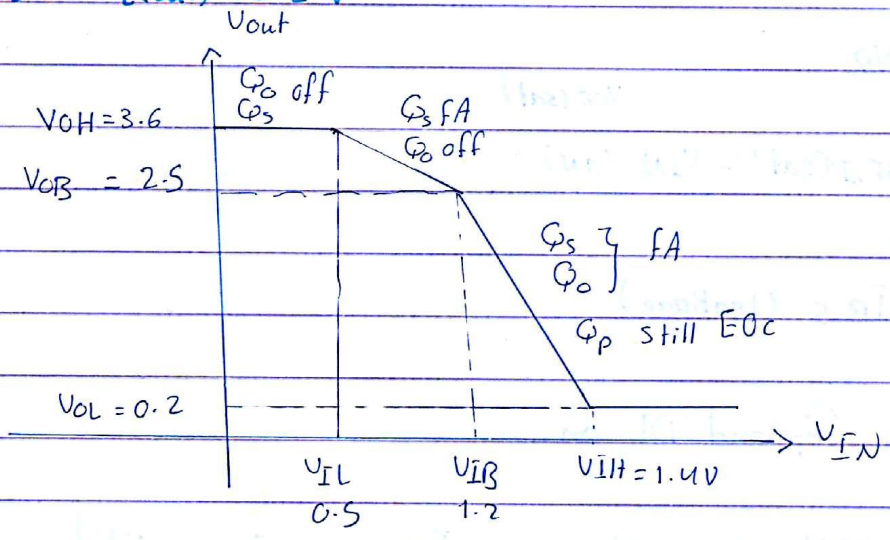 Vout
Qo off
Qs
VOH = 3.6
Qs fA
Qo off
VOB = 2.5
Qs } fA
Qo
Qp still EOC
VOL = 0.2
VIN
VIL
VIB
VIH = 1.4V
0.5
1.2